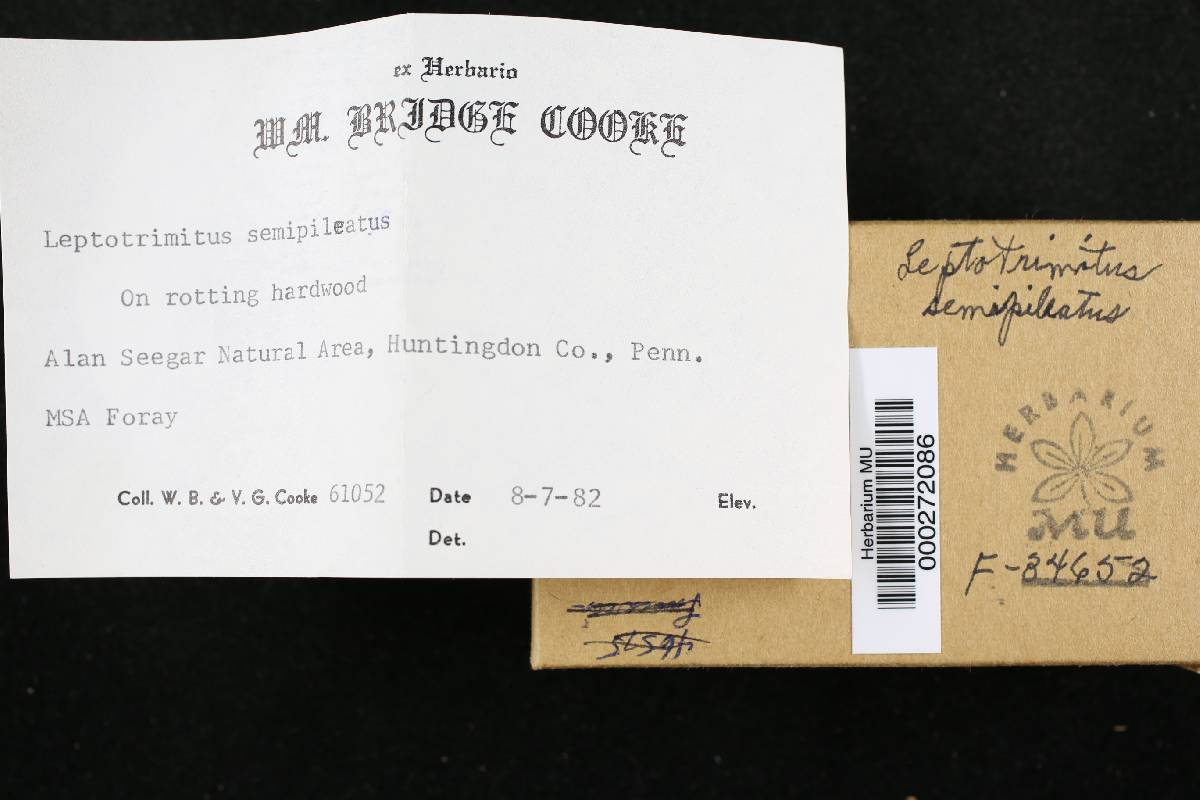 ex Herbario
WM. BRIDGE COOKE
Leptotrimitus semipileatus
On rotting hardwood
Alan Seegar Natural Area, Huntingdon Co., Penn.
MSA Foray
Coll. W. B. & V. G. Cooke 61052 Date 8-7-82 Elev.
Det.
Leptotrimitus
semipileatus
HERBARIUM
MU
F-34652
Herbarium MU
000272086